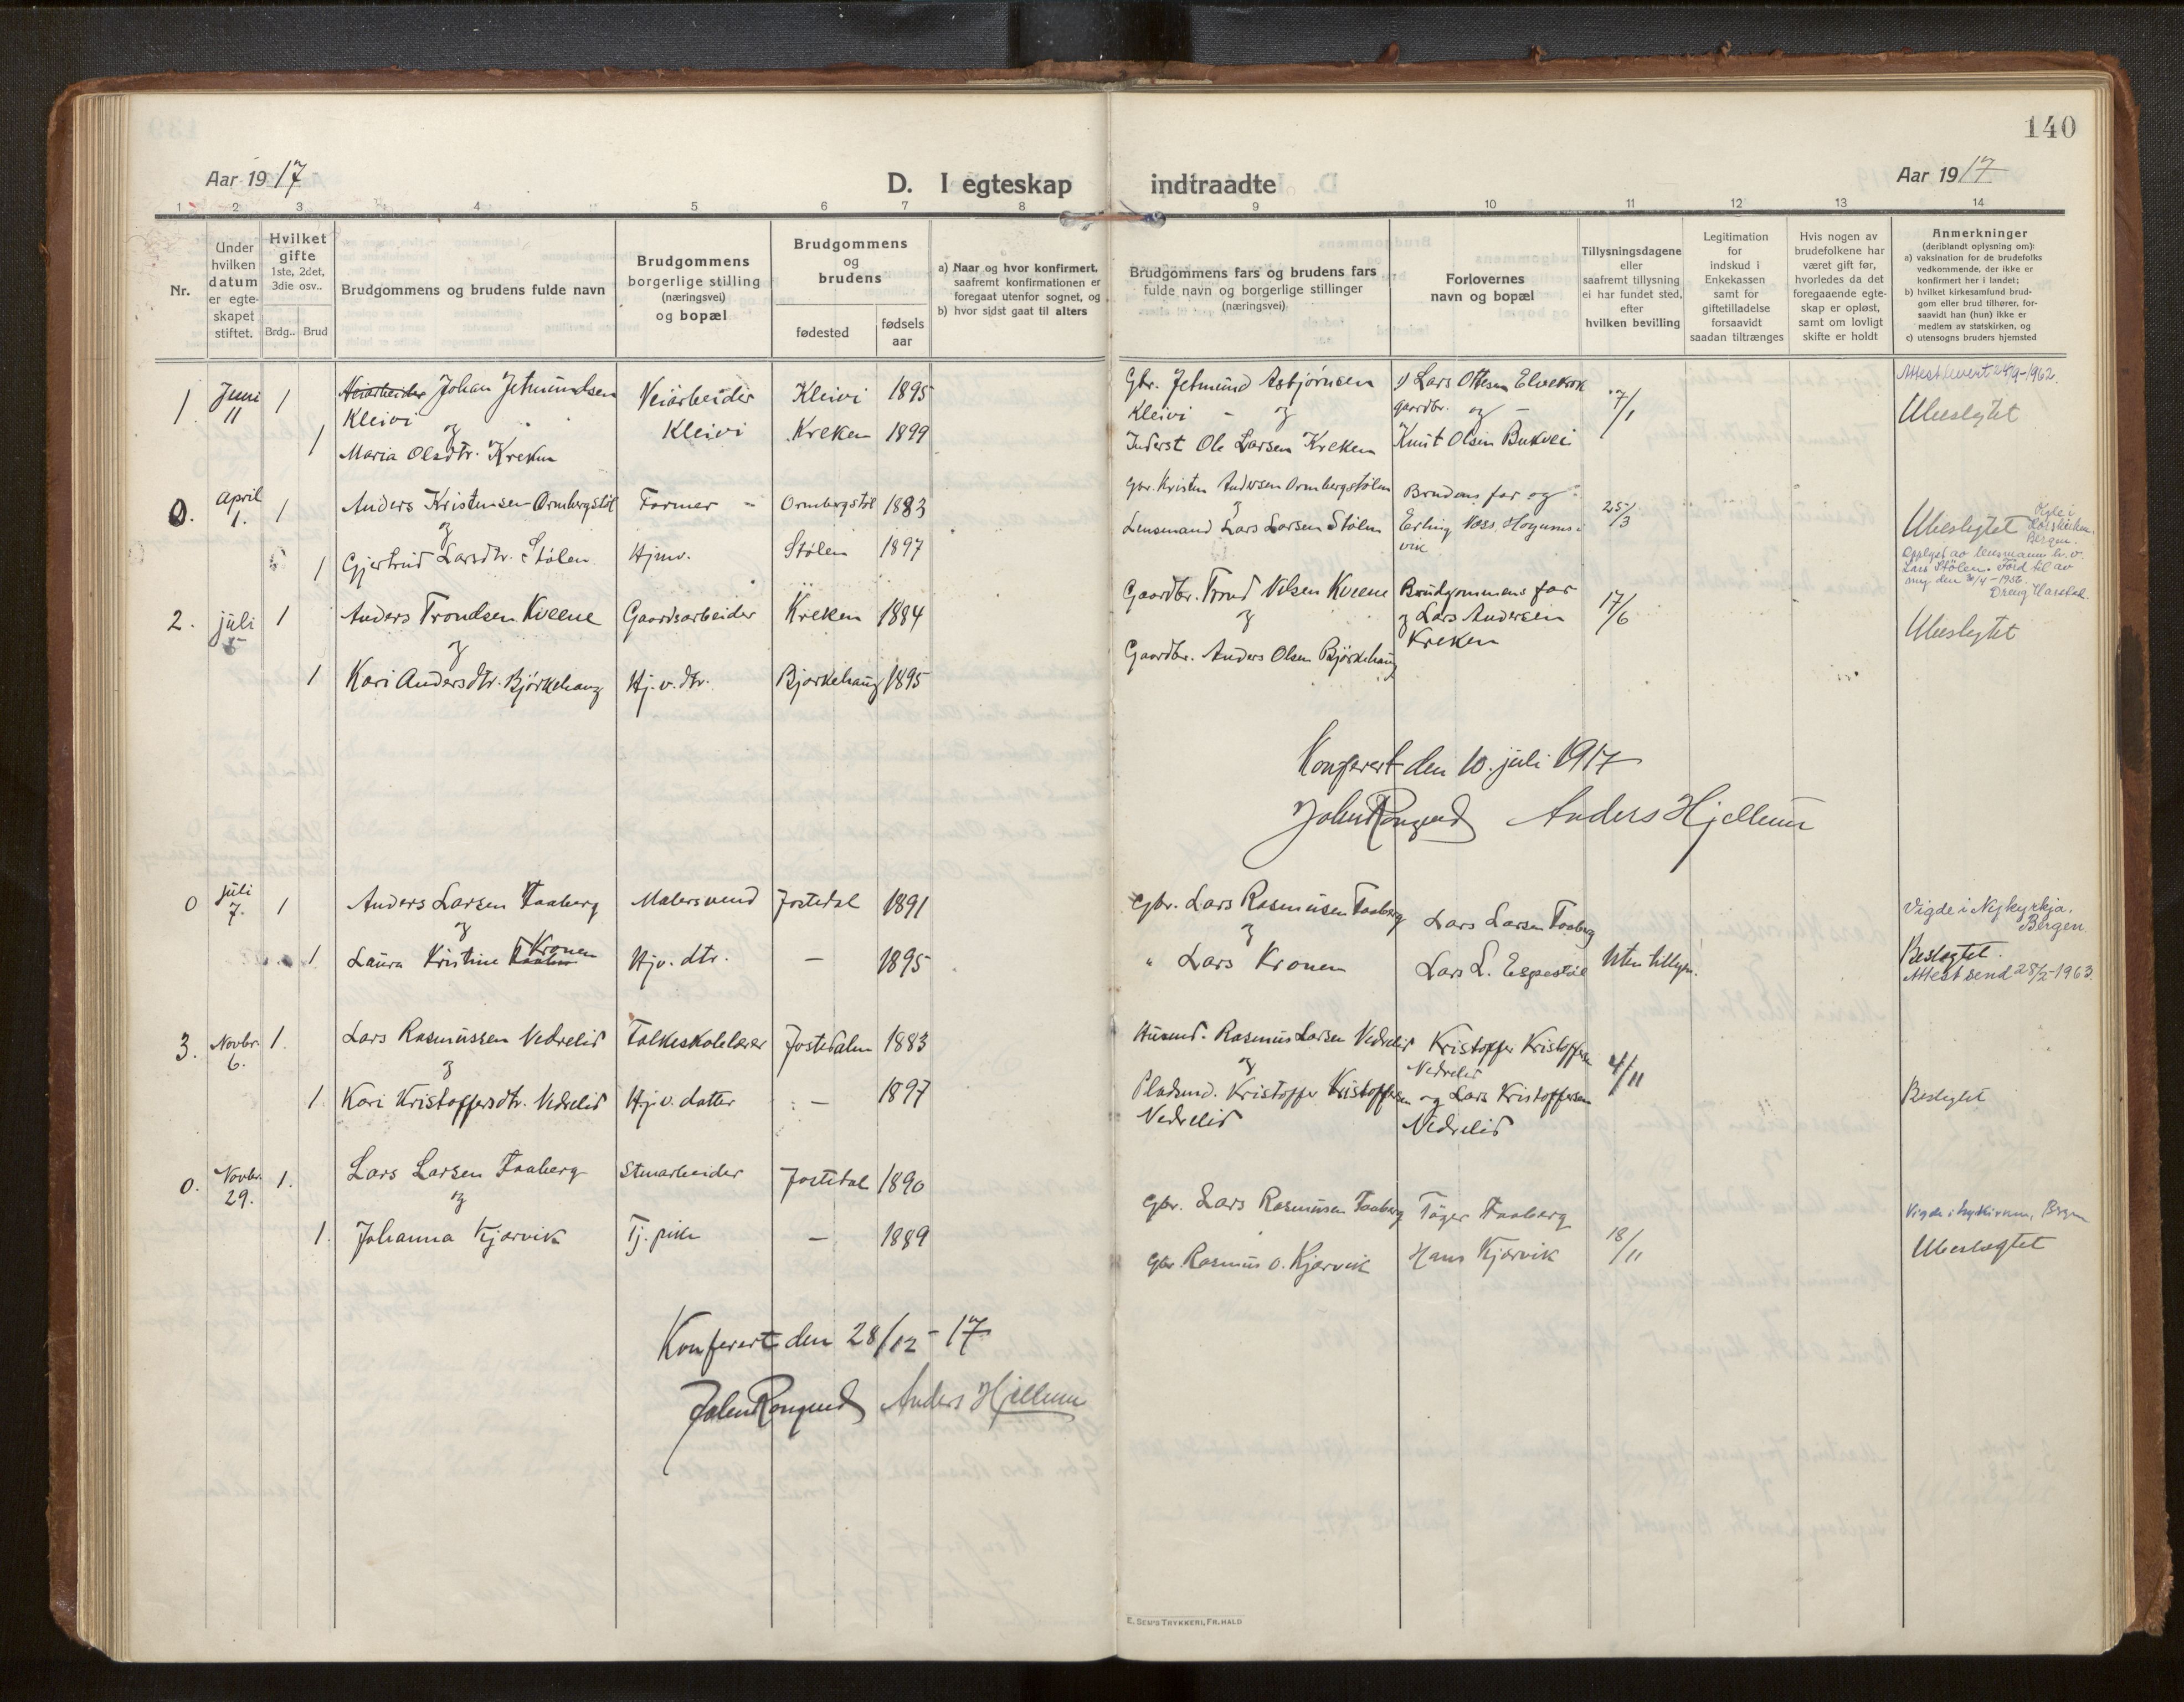 140
Aar 1917
D. I egteskap indtraadte
Aar 1917
1 2 3 4 5 6 7 8 9 10 11 12 13 14
Nr.
Under hvilken datum er egte-skapet stiftet.
Hvilket gifte
1ste, 2det, 3die osv..
Brdg.. Brud
Brudgommens og brudens fulde navn
Brudgommens borgerlige stilling (næringsvei) og bopæl
Brudgommens og brudens
fødested
fødsels aar
a) Naar og hvor konfirmert, saafremt konfirmationen er foregaat utenfor sognet, og
b) hvor sidst gaat til alters
Brudgommens fars og brudens fars fulde navn og borgerlige stillinger (næringsvei)
Forlovernes navn og bopæl
Tillysningsdagene eller saafremt tillysning ei har fundet sted, efter hvilken bevilling
Legitimation for indskud i Enkekassen samt for giftetilladelse forsaavidt saadan tiltrænges
Hvis nogen av brudefolkene har været gift før, hvorledes da det foregaaende egte-skap er opløst, samt om lovligt skifte er holdt
Anmerkninger
(deriblandt oplysning om):
a) vaksination for de brudefolks vedkommende, der ikke er konfirmert her i landet;
b) hvilket kirkesamfund brud-gom eller brud tilhører, for-saavidt han (hun) ikke er medlem av statskirken, og
c) utensogns bruders hjemsted
1. Juni 11 1 Veiarbeider Johan Jetmundsen Veiarbeider Kleivi 1895 Gbr. Jetmund Asbjørnsen 1) Lars Ottesen Elvekrok 17/1
Kleivi og Kleivi Kleivi - og gaardbr. og - Ubeslegtet
1 Maria Olsdtr. Kreken Kreken 1899 Inderst Ole Larsen Kreken Knut Olsen Bukvei
0. April 1. 1 Anders Kristensen Ormbergstøl Farmer - Ormbergstøl 1883 Gbr. Kristen Andersen Ormbergstølen Brudens far og 25/3
og
1 Gjertrud Larsdtr. Stølen Hjmv. Stølen 1897 Lensmand Lars Larsen Stølen Erling Voss. Ubeslegtet
Bergen.
Lars Stølen. Förd til av
2. juli 5 1 Anders Trondsen Kveene Gaardsarbeider Kreken 1884 Gaardbr. Trond Nilsen Kveene Brudgommens far 17/6
og og og Lars Andersen Ubeslegtet
1 Kari Andersdtr. Bjørkehaug Hj. v. dtr. Bjørkehaug 1895 Gaardbr. Anders Olsen Bjørkehaug Kreken
Konferert den 10. juli 1917
Anders Hjellum
0 juli 7. 1 Anders Larsen Faaberg Malersvend Jostedal 1891 Gbr. Lars Rasmusen Faaberg Lars Larsen Faaberg Vigde i Nykyrkja, Bergen
og og
1 Laura Kristine Kronen Hjv. dtr. — 1895 " Lars Kronen Lars L. Espestøl Uten tillysn. Beslegtet.
Attest send 28/2-1963
3. Novbr. 6. 1. Lars Rasmussen Vedrelid Folkeskolelærer Jostedalen 1883 Husmd. Rasmus Larsen Vedrelid Kristoffer Kristoffersen 4/11
og og Vedrelid
1 Kari Kristoffersdtr. Vedrelid Hj. v. datter — 1897 Pladsmd. Kristoffer Kristoffersen og Lars Kristoffersen Beslegtet
Vedrelid Vedrelid
0. Novbr. 29. 1. Lars Larsen Faaberg Stenarbeider Jostedal 1890 Gbr. Lars Rasmusen Faaberg Tøger Faaberg 18/11
og
1. Johanna Kjørvik Tj. pike — 1889 Gbr. Rasmus O. Kjørvik Hans Kjørvik Ubeslegtet
Konferert den 28/12 - 17
Anders Hjellum
E. Sem's Trykkeri, Fr.hald